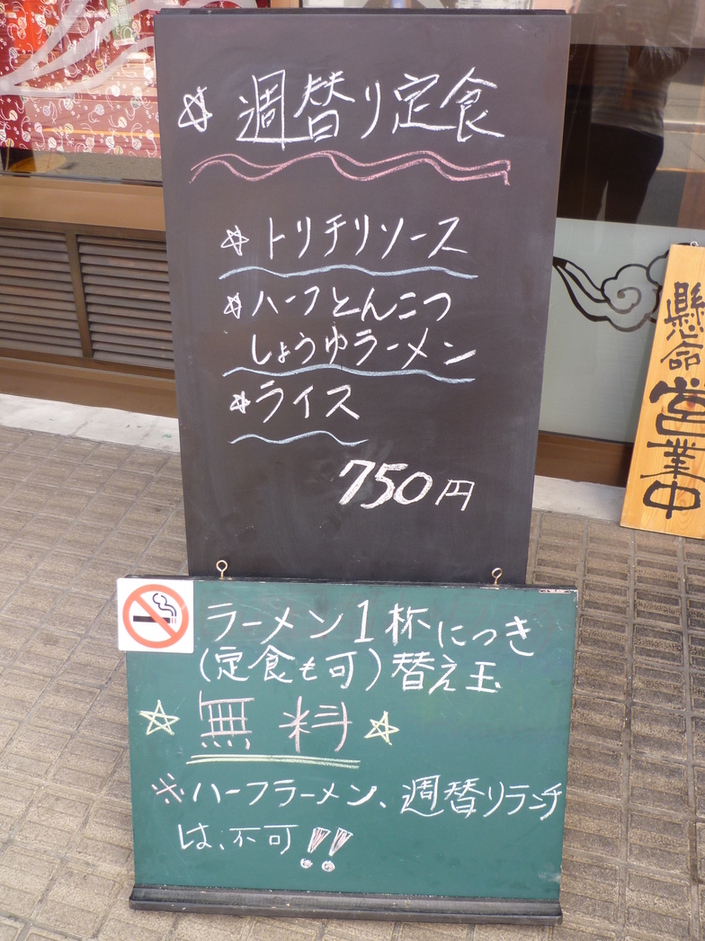 ☆週替り定食
☆トリチリソース
☆ハーフとんこつ
しょうゆラーメン
☆ライス
750円
ラーメン1杯につき
(定食も可)替え玉
☆無料☆
※ハーフラーメン、週替りランチ
は、不可!!
懸命営業中